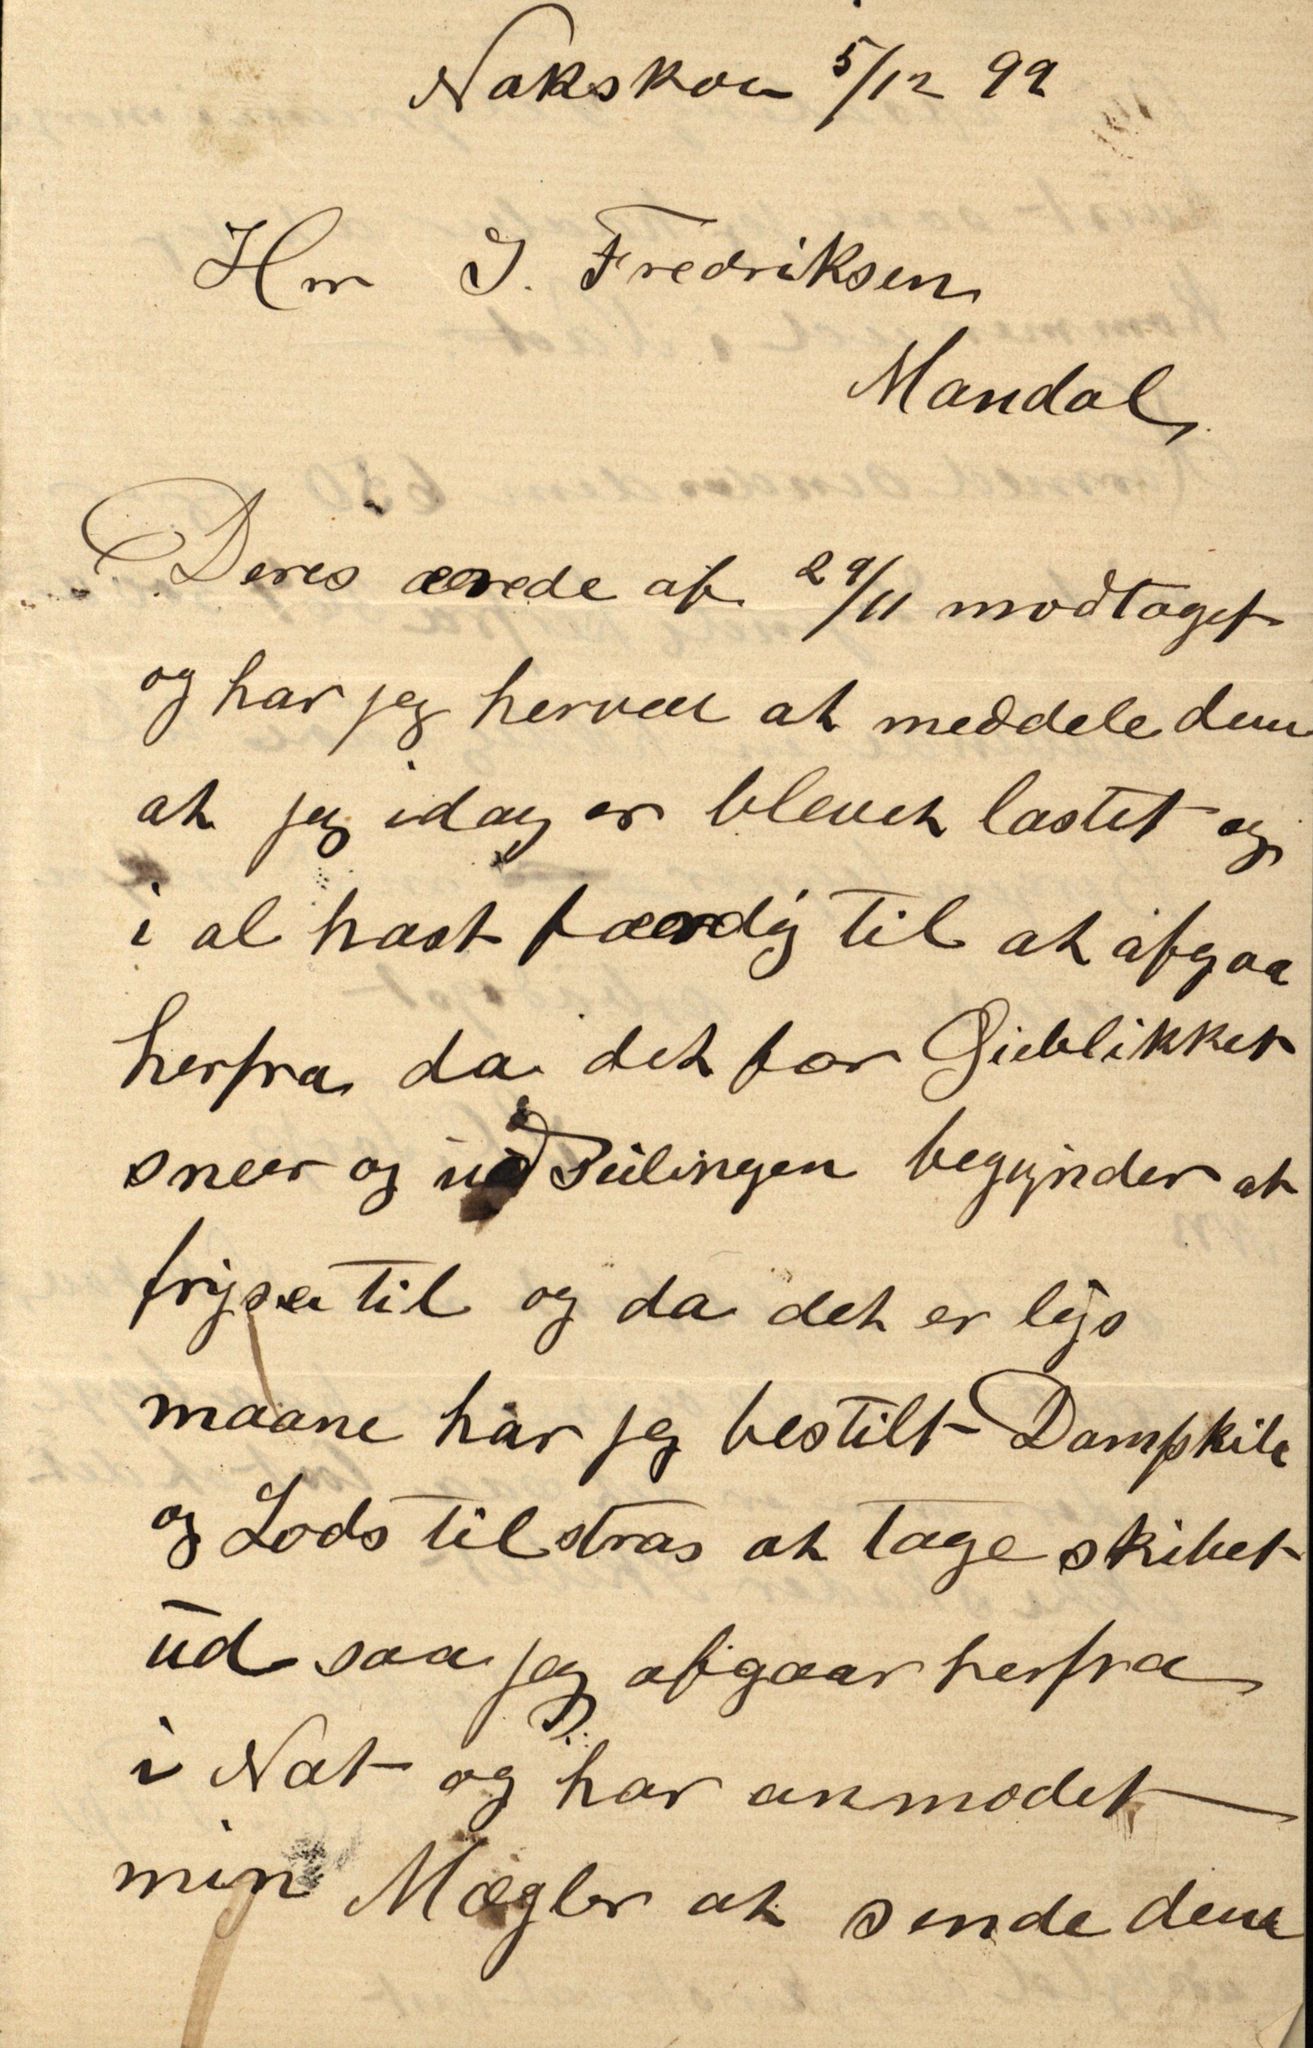 Nakskov 5/12 99
Hrr J. Fredriksen
Mandal,
Deres ærede af 29/11 modtaget
og har jeg herved at meddele dem
at jeg idag er blevet lastet og
i al hast færdig til at afgaa
herfra da det for Øieblikket
sneer og udseilingen begynder at
fryse til og da det er lys
maane har jeg bestilt Dampskib
og Lods til stras at tage skibet
ud saa jeg afgaar herfra
i Nat og har anmodet
min Mægler at sende dem